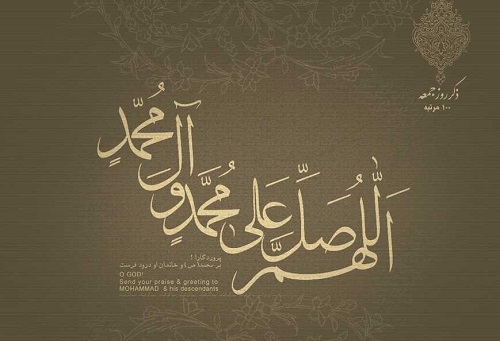 ذکر روز جمعه
۱۰۰ مرتبه
اَللّهُمَّ صَلِّ عَلی مُحَمَّدٍ وَآلِ مُحَمَّدٍ
پروردگارا !
بر محمد (ص) و خاندان او درود فرست
O GOD!
Send your praise & greeting to
MOHAMMAD & his descendants